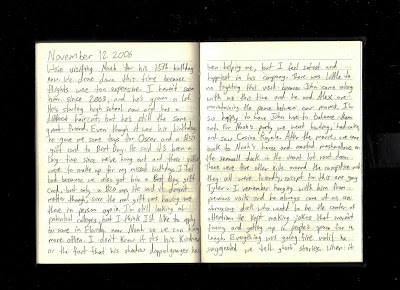 November 12 2006
We're visiting Noah for his 15th birthday
now. We drove down this time because
flights were too expensive. I haven't seen
him since 2003, and he's grown a lot.
He's starting high school now and has a
different haircut, but he's still the same
great friend. Even though it was his birthday
he gave me some toys for Oscar and a
gift card to Best Buy. He said it's been a
long time since we've hung out and these
were to make up for any missed birthdays. I feel
bad because we also got him a Best Buy gift
card, but only a $20 one. He said it doesn't
matter though, since the real gift was having me
there in person again. I'm still looking at
potential colleges, but I think I'd like to apply
to some in Florida near Noah so we can hang
more often. I don't know if it's his kindness
or the fact that his shadow doppelganger has
been helping me, but I feel safest and
happiest in his company. There was little to
no fighting that visit because John came along
with me this time and he and Alex are
maintaining the peace between our parents. I'm
so happy to have John here to balance them
out. For Noah's party we went bowling,
and saw Casino Royale. After the movie, we came
back to Noah's house and roasted marshmallows on
the
There were five other kids around the campfire and
they all were friendly, except for this one guy
Tyler. I remember hanging with him from
previous visits and he always came off as an
obnoxious dick who wanted to be the center of
attention. He kept making jokes that weren't
funny and getting up in people's space for a
laugh. Everything was going fine until he
suggested we tell ghost stories. When it